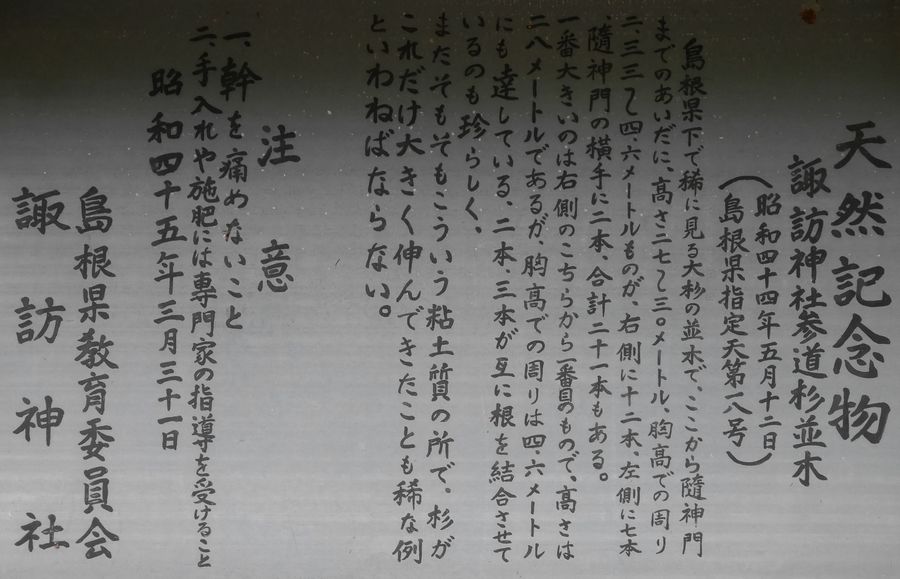 天然記念物
諏訪神社参道杉並木
(昭和四十四年五月十二日
島根県指定天第一八号)
島根県下で稀に見る大杉の並木で、ここから隨神門
までのあいだに、高さ二七〜三〇メートル、胸高での周り
二、三三〜四・六メートルものが、右側に十二本、左側に七本
、隨神門の横手に二本、合計二十一本もある。
一番大きいのは右側のこちらから一番目のもので、高さは
二八メートルであるが、胸高での周りは四・六メートル
にも達している、二本、三本が互に根を結合させて
いるのも珍らしく、
またそもそもこういう粘土質の所で、杉が
これだけ大きく伸んできたことも稀な例
といわねばならない。
注意
一、幹を痛めないこと
二、手入れや施肥には専門家の指導を受けること
昭和四十五年三月三十一日
島根県教育委員会
諏訪神社